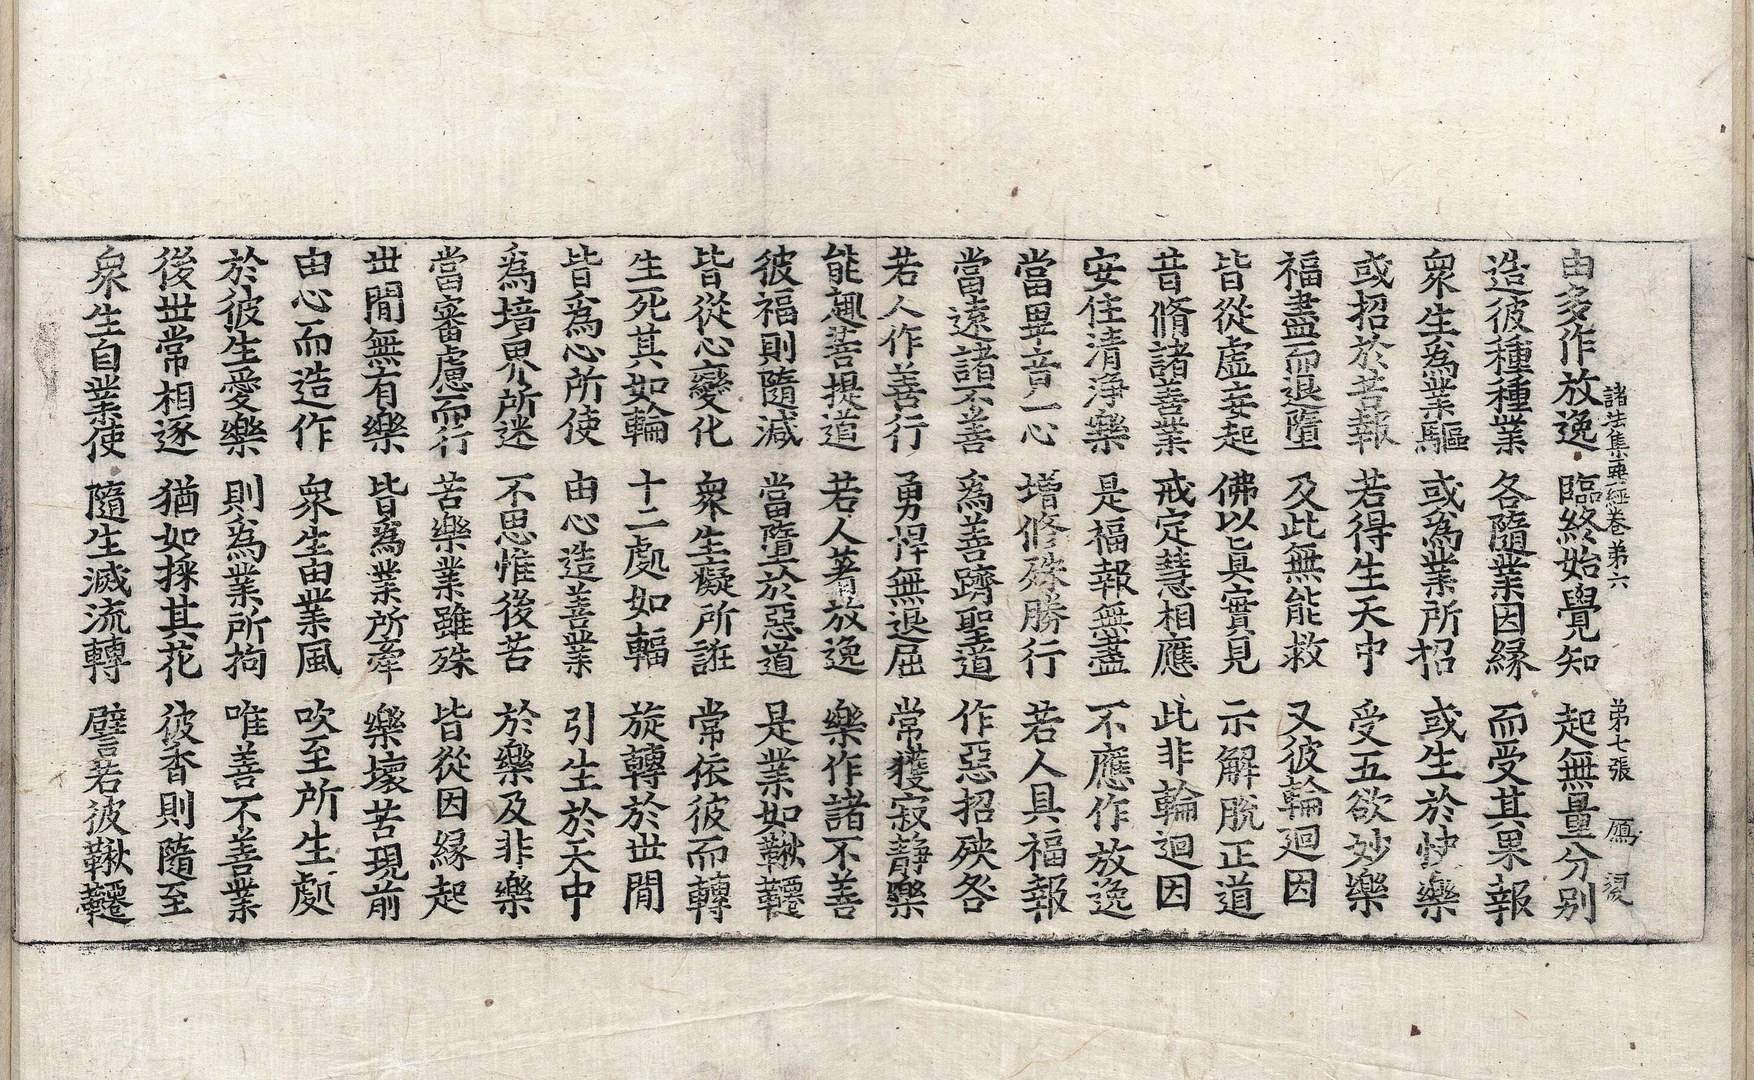 諸法集要經卷第六 第七張 鴈
由多作放逸 臨終始覺知 起無量分別
造彼種種業 各隨業因緣 而受其果報
衆生爲業驅 或爲業所招 或生於快樂
或招於苦報 若得生天中 受五欲妙樂
福盡而退墮 及此無能救 又彼輪迴因
皆從虛妄起 佛以眞實見 示解脫正道
昔脩諸善業 戒定慧相應 此非輪迴因
安住清淨樂 是福報無盡 不應作放逸
當畢竟一心 增修殊勝行 若人具福報
當遠諸不善 爲善躋聖道 作惡招殃咎
若人作善行 勇悍無退屈 常獲寂靜樂
能趣菩提道 若人著放逸 樂作諸不善
彼福則隨減 當墮於惡道 是業如鞦韆
皆從心變化 衆生癡所誑 常依彼而轉
生死其如輪 十二處如輻 旋轉於世閒
皆爲心所使 由心造善業 引生於天中
爲境界所迷 不思惟後苦 於樂及非樂
當審慮而行 苦樂業雖殊 皆從因緣起
世閒無有樂 皆爲業所牽 樂壞苦現前
由心而造作 衆生由業風 吹至所生處
於彼生愛樂 則爲業所拘 唯善不善業
後世常相逐 猶如採其花 彼香則隨至
衆生自業使 隨生滅流轉 譬若彼鞦韆